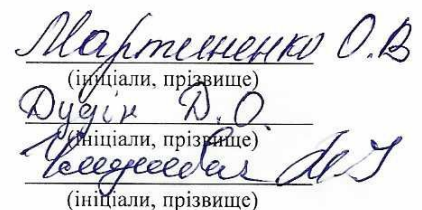 Мартиненко О.В
(ініціали, прізвище)
Дудін Д.О.
(ініціали, прізвище)
(ініціали, прізвище)